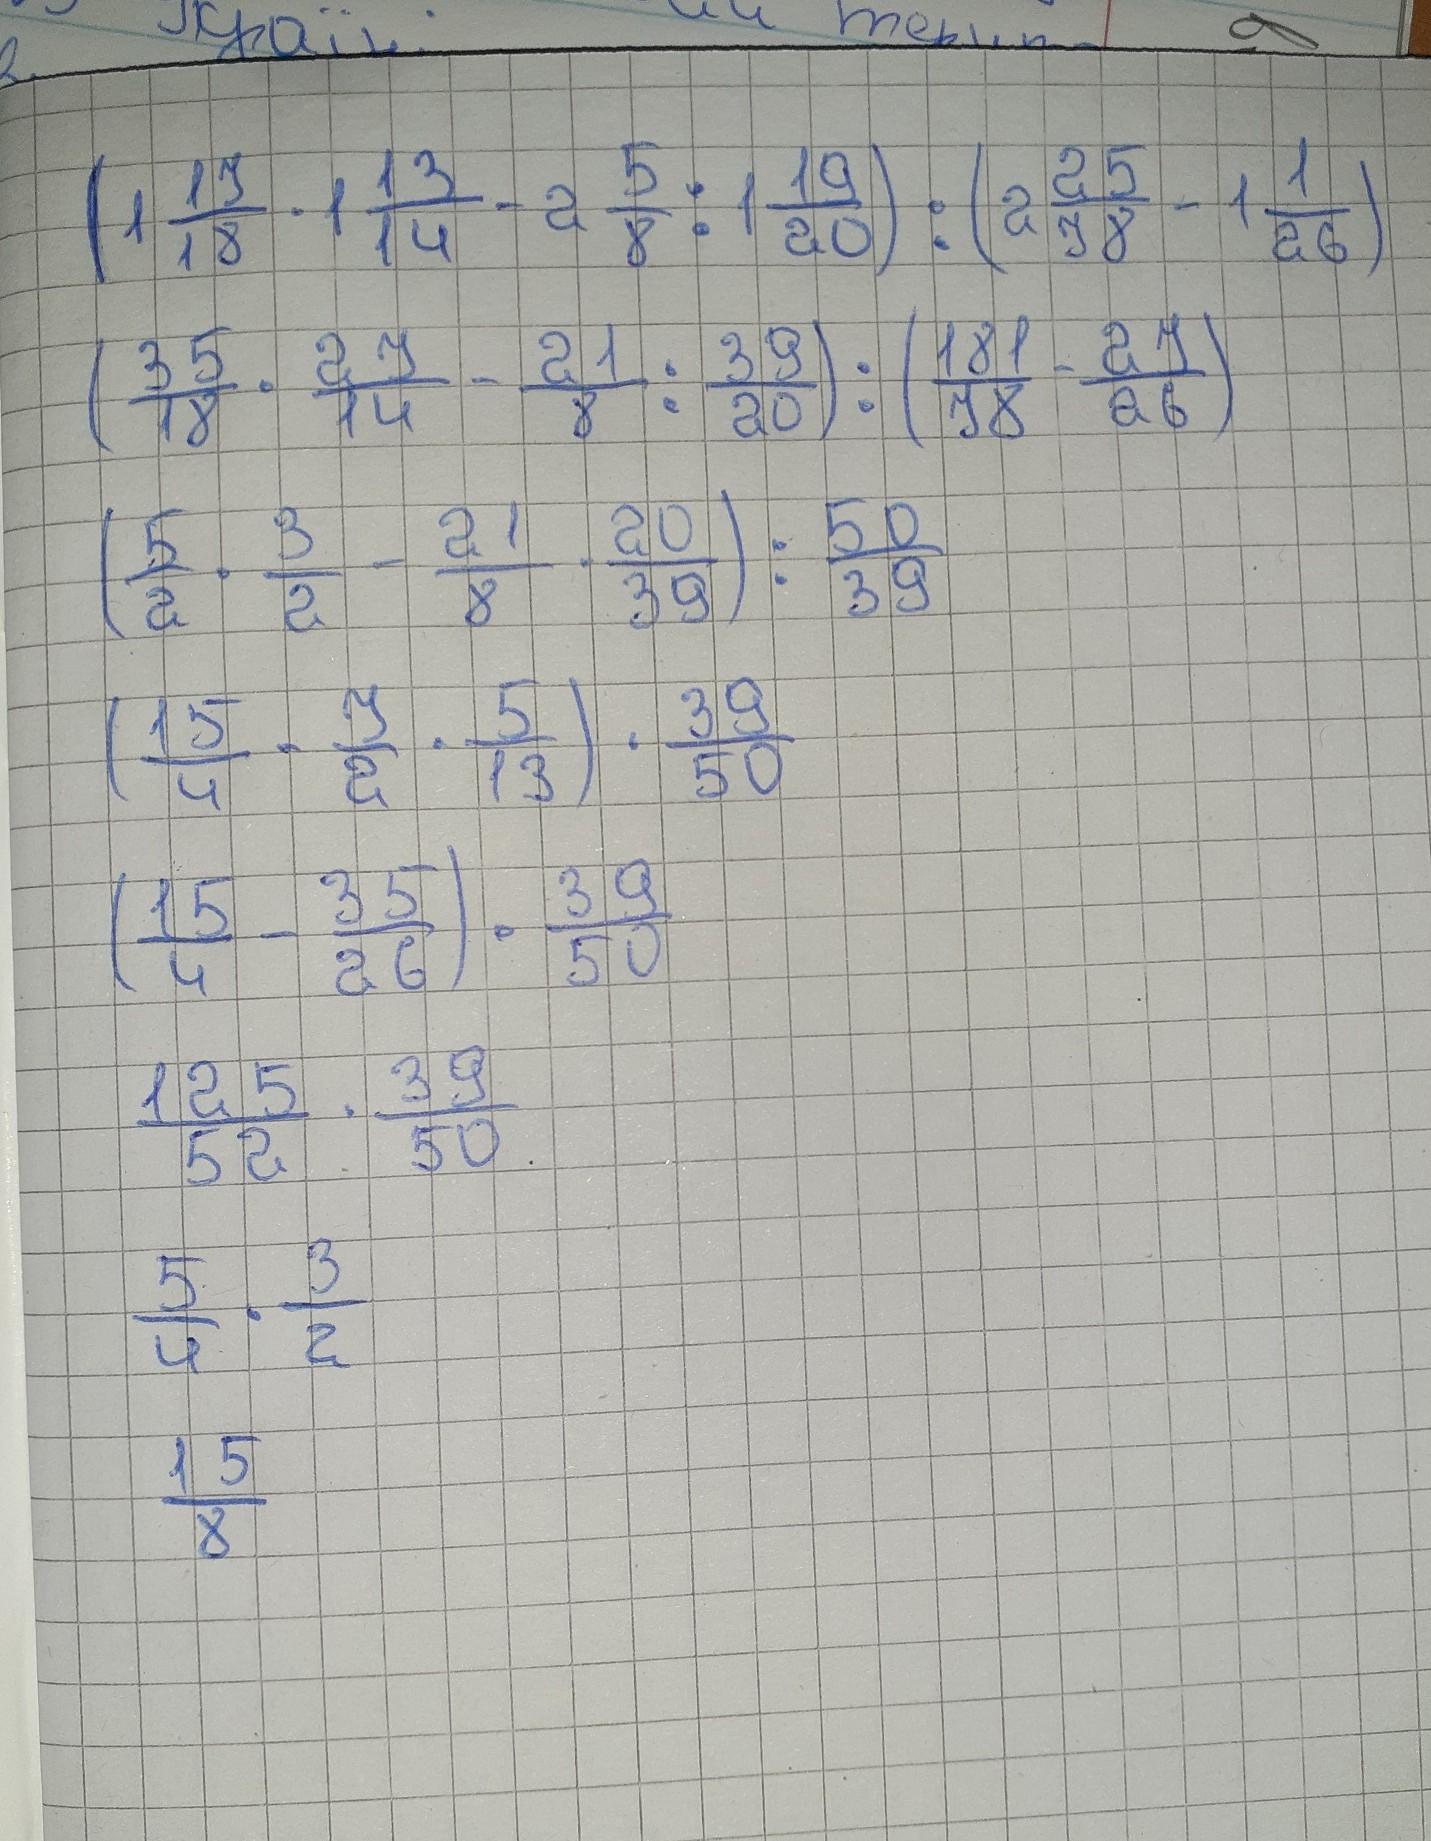 Украї
(1 17/18 · 1 13/14 - 2 5/8 : 1 19/20) : (2 25/78 - 1 1/26)
(35/18 · 27/14 - 21/8 : 39/20) : (181/78 - 27/26)
(5/2 · 3/2 - 21/8 · 20/39) : 50/39
(15/4 - 7/2 · 5/13) · 39/50
(15/4 - 35/26) · 39/50
125/52 · 39/50
5/4 · 3/2
15/8